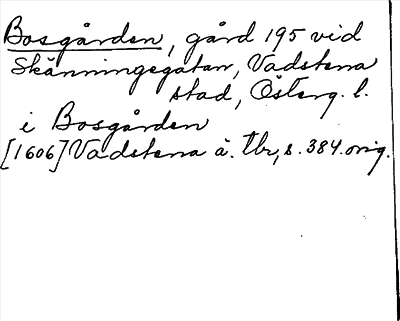 Bosgården, gård 195 vid
Skänningegatan, Vadstena
stad, Österg. l.
i Bosgården
[1606] Vadstena ä. tbr, s. 384. orig.